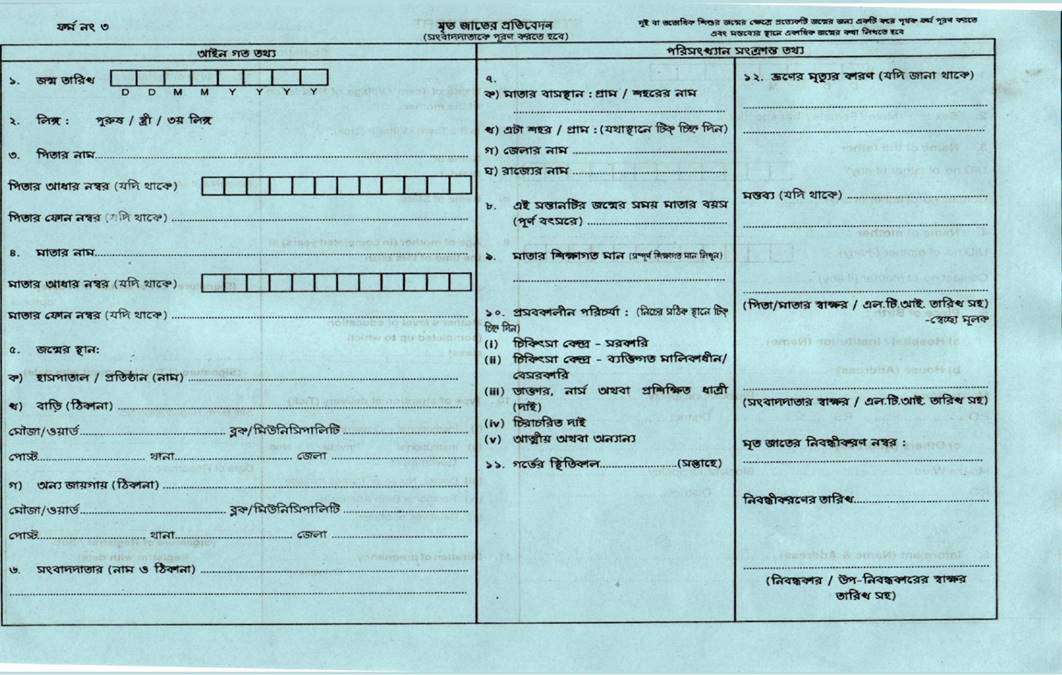 ফর্ম নং ৩
মৃত জাতের প্রতিবেদন
(সংবাদদাতাকে পূরণ করতে হবে)
দুই বা ততোধিক শিশুর জন্মের ক্ষেত্রে প্রত্যেকটি জন্মের জন্য একটি করে পৃথক ফর্ম পূরণ করতে
এবং মন্তব্যের স্থানে একাধিক জন্মের কথা লিখতে হবে
আইন গত তথ্য
১. জন্ম তারিখ
D D M M Y Y Y Y
২. লিঙ্গ : পুরুষ / স্ত্রী / ৩য় লিঙ্গ
৩. পিতার নাম
পিতার আধার নম্বর (যদি থাকে)
পিতার ফোন নম্বর (যদি থাকে)
৪. মাতার নাম
মাতার আধার নম্বর (যদি থাকে)
মাতার ফোন নম্বর (যদি থাকে)
৫. জন্মের স্থান:
ক) হাসপাতাল / প্রতিষ্ঠান (নাম)
খ) বাড়ি (ঠিকানা)
মৌজা/ওয়ার্ড ব্লক/মিউনিসিপালিটি
পোস্ট থানা জেলা
গ) অন্য জায়গায় (ঠিকানা)
মৌজা/ওয়ার্ড ব্লক/মিউনিসিপালিটি
পোস্ট থানা জেলা
৬. সংবাদদাতার (নাম ও ঠিকানা)
পরিসংখ্যান সংক্রান্ত তথ্য
৭.
ক) মাতার বাসস্থান : গ্রাম / শহরের নাম
খ) এটা শহর / গ্রাম : (যথাস্থানে টিক্ চিহ্ন দিন)
গ) জেলার নাম
ঘ) রাজ্যের নাম
৮. এই সন্তানটির জন্মের সময় মাতার বয়স
(পূর্ণ বৎসরে)
৯. মাতার শিক্ষাগত মান (সম্পূর্ণ শিক্ষাগত মান লিখুন)
১০. প্রসবকালীন পরিচর্যা : (নিচের সঠিক স্থানে টিক্
চিহ্ন দিন)
(i) চিকিৎসা কেন্দ্র - সরকারি
(ii) চিকিৎসা কেন্দ্র - ব্যক্তিগত মালিকাধীন/
বেসরকারি
(iii) ডাক্তার, নার্স অথবা প্রশিক্ষিত ধাত্রী
(দাই)
(iv) চিরাচরিত দাই
(v) আত্মীয় অথবা অন্যান্য
১১. গর্ভের স্থিতিকাল (সপ্তাহে)
১২. ভ্রূণের মৃত্যুর কারণ (যদি জানা থাকে)
মন্তব্য (যদি থাকে)
(পিতা/মাতার স্বাক্ষর / এল.টি.আই. তারিখ সহ)
-স্বেচ্ছা মূলক
(সংবাদদাতার স্বাক্ষর / এল.টি.আই. তারিখ সহ)
মৃত জাতের নিবন্ধীকরণ নম্বর :
নিবন্ধীকরণের তারিখ
(নিবন্ধকার / উপ-নিবন্ধকারের স্বাক্ষর
তারিখ সহ)